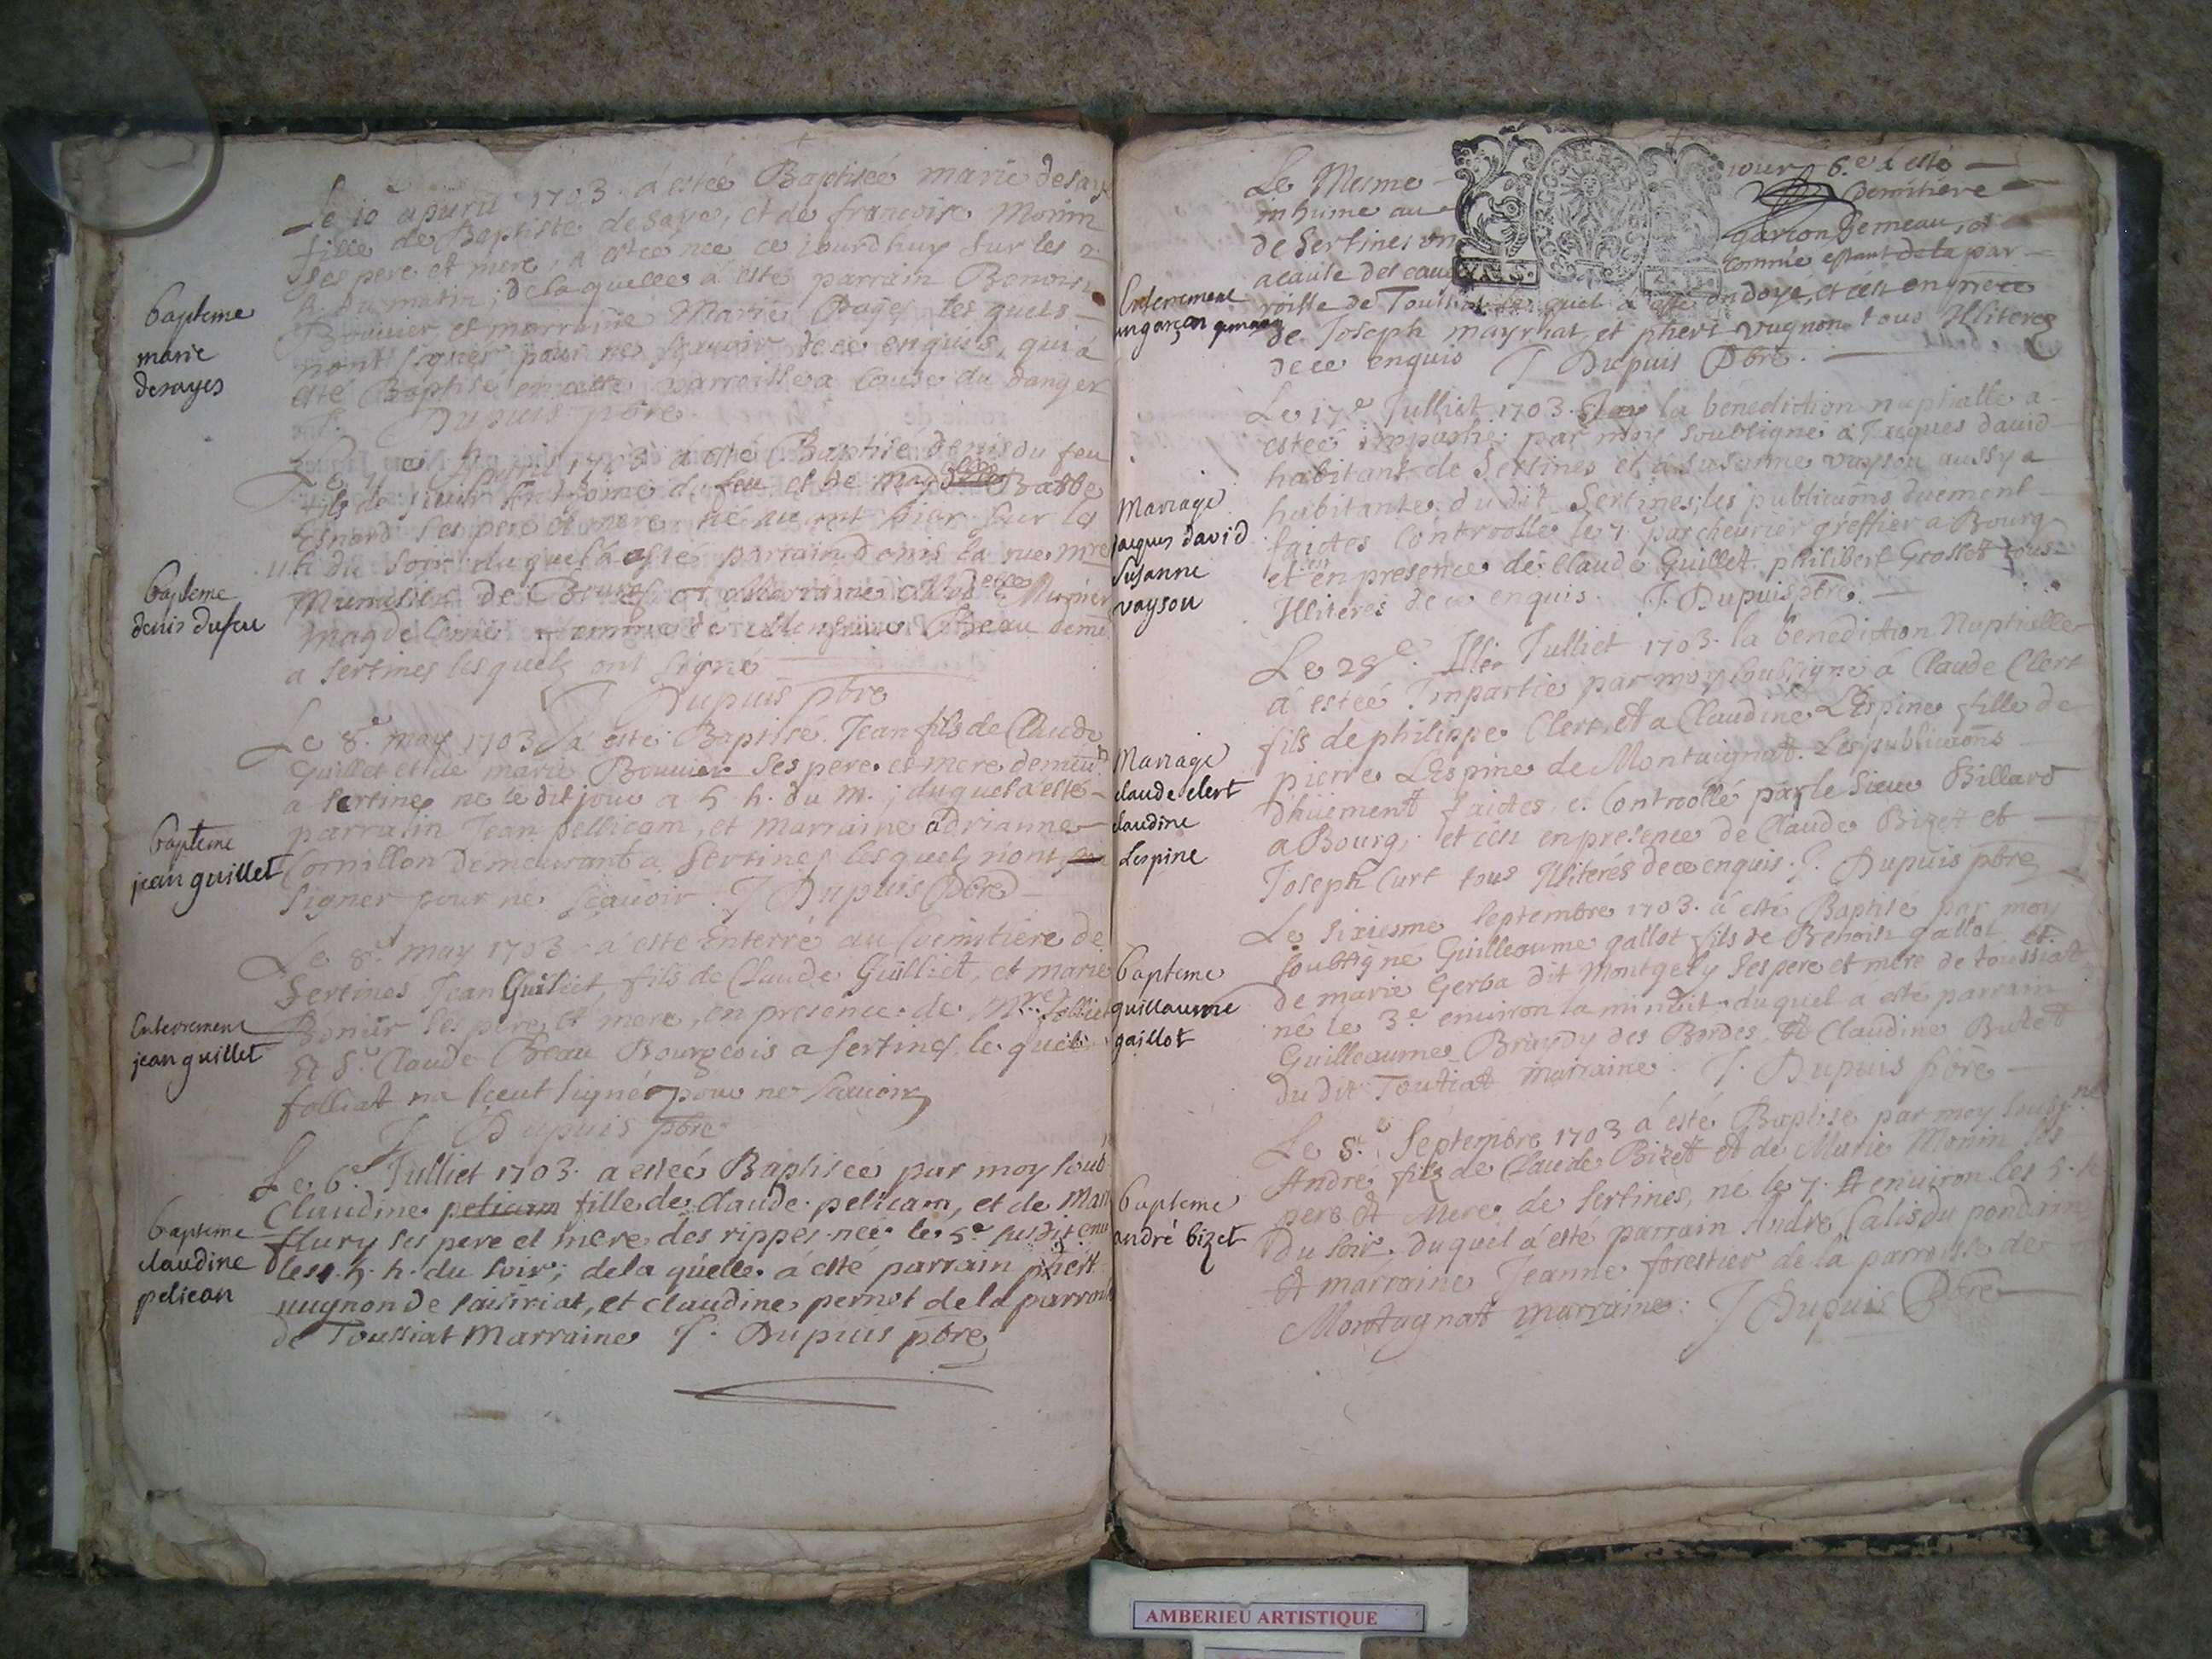 Le 10 apuril 1703. a estée Baptisée marie desaye
fille de Baptiste desaye, et de francoise Monin
ses pere et mere, a estee née ce jourdhuy sur les 2
h. du matin; de laquelle a estés parrain Benoist
Bouuier et marraine Marie Pages les quels
nont signer pour ne scauoir de ce enquis, qui a
esté Baptisé en cette parroisse a cause du danger
Dupuis pbre.
bapteme
marie
desayes
1703 a esté Baptisé denis du feu
fils de sieur Anthoine du feu et de Babbe
Esnard ses pere et mere né hier sur les
h du soir duquel a este parrain Denis la rue mre
Munisier de Bourg et Marraine Mad elle Munier
magdelaine femme de Monsieur Cheau demt
a sertines lesquels ont signé
J Dupuis pbre
bapteme
denis dufeu
Le 8e. may 1703 a esté Baptisé Jean fils de Claude
Guillet et de marie Bouuier ses pere et mere demeu
a sertines ne le dit jour a 5 h. du m.; duquel a esté
parraiin Jean pellicam, et marraine adrianne
Cornillon demeurant a sertines lesquels nont
signer pour ne scauoir. J Dupuis Pbre
bapteme
jean guillet
Le 8e. may 1703 a este Enterré au Coemitiere de
sertines Jean Guilliet, fils de Claude Guilliet, et marie
Bonier ses pere et mere, en presence de Mre folliet
et Sr. Claude Cheau Bourgeois a sertines le quel
folliat na sceut signé pour ne scauoir
J Dupuis pbre
Enterrement
jean guillet
Le 6e Julliet 1703. a esteé Baptiseé par moy soub
Claudine pelicam fille de Claude pelicam, et de Mar
flury ses pere et mere des rippes neé le 5e susdit enui
les 5. h. du soir; de la quelle a esté parrain phert
uugnon de saisiriat, et claudine pernet de la parroi
de Toussiat Marraine J. Dupuis pbre
bapteme
claudine
pelican
Le Mesme jour 6.e a esté
inhume au Cemitiere
de Sertines un garcon Jemeau,
a cause des eaux comme estant de la par
roisse de Toussiat le quel a esté ondoyé, et c'est en
de Joseph mayrhat et phert vugnon tous Illiteres
de ce enquis J Dupuis Pbre.
Enterrement
un garçon
Le 17e Julliet 1703. la bénediction nuptialle a
esteé impartie par moy soubsigné a Jacques david
habitant de Sertines et a Susanne vayson aussy
habitante du dit Sertines; les publicaõns duement
faictes Controolle le 7e par cheurier greffier a Bourg
et en presence de Claude Guillet philibert Grosset tous
Illiteres de ce enquis. J. Dupuis pbre.
Mariage
jacques david
Susanne
vayson
Le 28e. Julliet 1703. la benediction Nuptialle
á esteé Impartie par moy soubsigné á Claude Clert
fils de philippe Clert, et a Claudine L'Espine fille de
pierre L'Espine de Montaignat. Les publicaõns
dhuement faictes, Controollé par le sieur Billard
a Bourg; et ceu en presence de Claude Bizet et
Joseph Curt tous Illiterés de ce enquis. J. Dupuis pbre
Mariage
claude clert
claudine
Lespine
Le sixiesme septembre 1703. á esté Baptisé par moy
soubsigné Guilleaume gallot fils de Benoist gallot et
de marie Gerba dit Montgely ses pere et mere de toussiat
né le 3.e enuiron la minuit duquel á esté parrain
Guilleaume Braydy des Bordes et Claudine Buget
du dit Toutiat marraine. J. Dupuis pbre
bapteme
guillaume
gaillot
Le 8.e Septembre 1703 á esté Baptisé par moy soussné
André fils de Claude Bizet et de Marie Monin ses
pere et mere de sertines, ne le 7. et enuiron les 5. h
du soir. duquel á esté parrain André Calis du pondrin
et marraine Jeanne forestier de la parroisse de
Montagnat marraine. J Dupuis Pbre
bapteme
andré bizet
AMBERIEU ARTISTIQUE